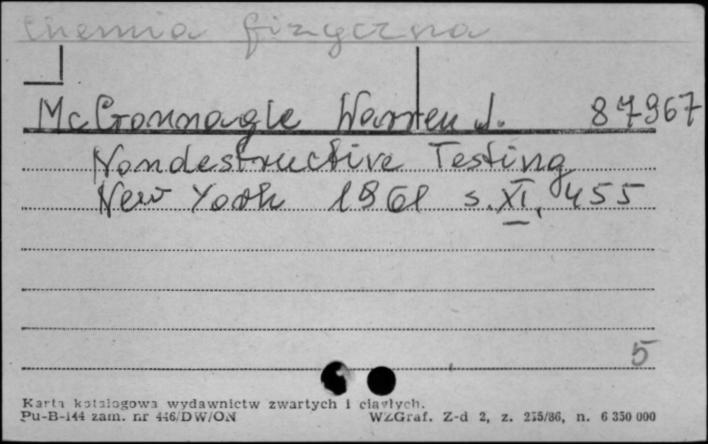 Chemia fizyczna
McGonnagle Warren J. 87967
Nondestructive Testing
New York 1961 s. XI, 455
5
Karta katalogowa wydawnictw zwartych i ciągłych.
Pu-B-144 zam. nr 446/DW/ON WZGraf. Z-d 2, z. 215/86, n. 6 350 000